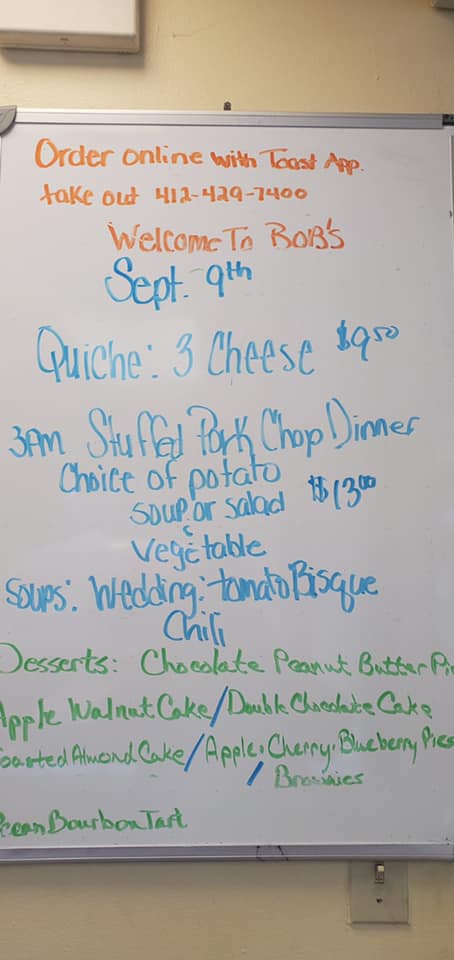 Order online with Toast App.
take out 412-429-7400
Welcome To BOB's
Sept. 9th
Quiche: 3 Cheese $9.50
3PM Stuffed Pork Chop Dinner
Choice of potato
soup or salad $13.00
&
vegetable
Soups: Wedding: tomato Bisque
Chili
Desserts: Chocolate Peanut Butter Pie
Apple Walnut Cake/Double Chocolate Cake
Toasted Almond Cake/Apple, Cherry, Blueberry Pies
/ Brownies
Pecan Bourbon Tart